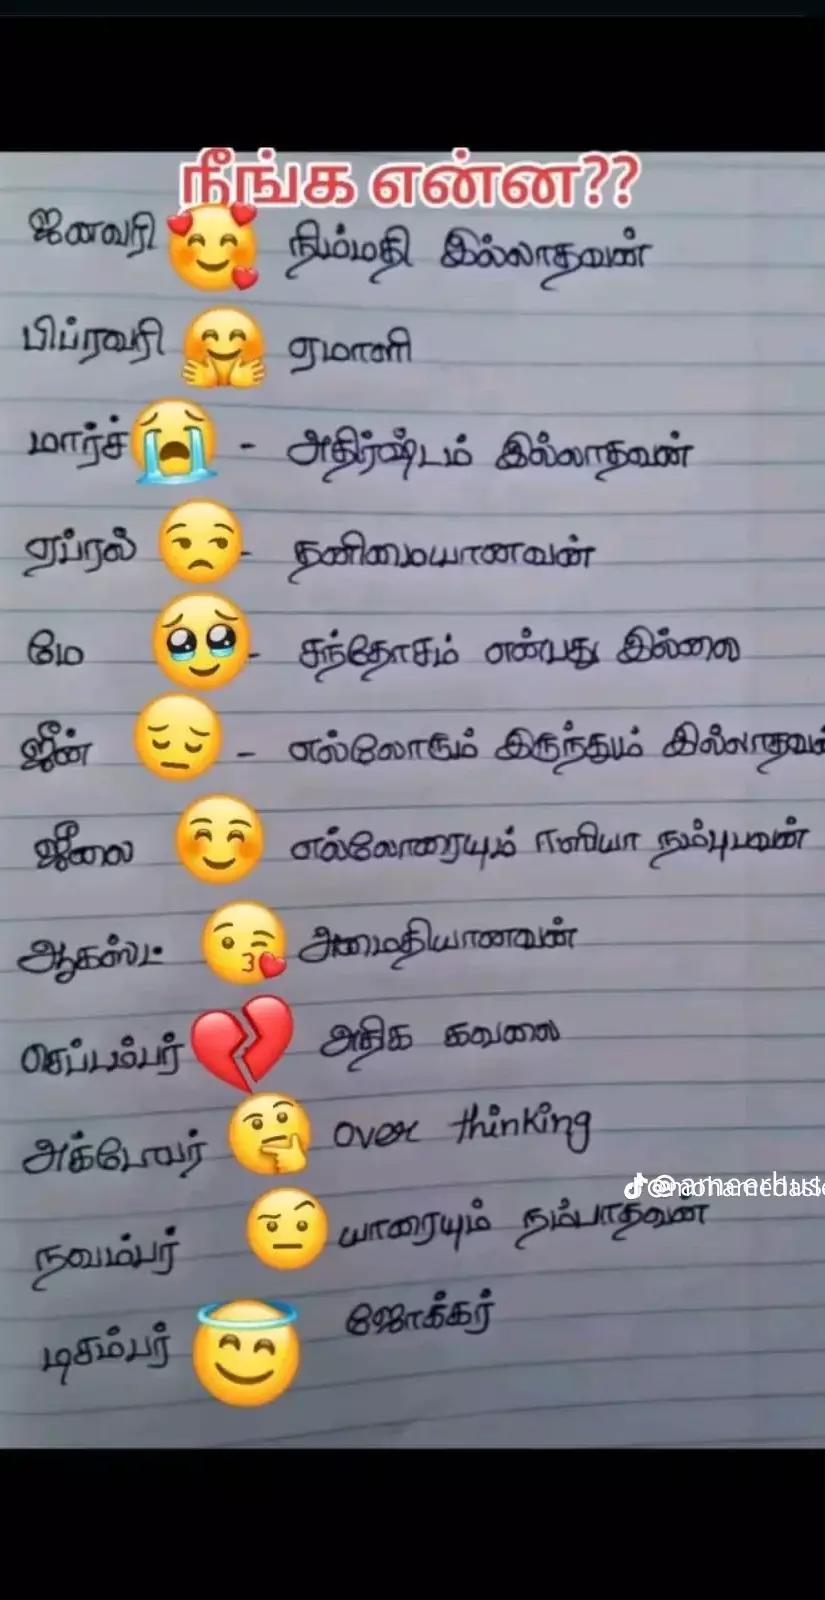 நீங்க என்ன??
ஜனவரி நிம்மதி இல்லாதவன்
பிப்ரவரி ஏமாளி
மார்ச் - அதிர்ஷ்டம் இல்லாதவன்
ஏப்ரல் - தனிமையானவன்
மே - சந்தோசம் என்பது இல்லை
ஜீன் - எல்லோரும் இருந்தும் இல்லாதவன்
ஜீலை எல்லோரையும் ஈஸியா நம்புபவன்
ஆகஸ்ட் அமைதியானவன்
செப்டம்பர் அதிக கவலை
அக்டோவர் over thinking
நவம்பர் யாரையும் நம்பாதவன்
டிசம்பர் ஜோக்கர்